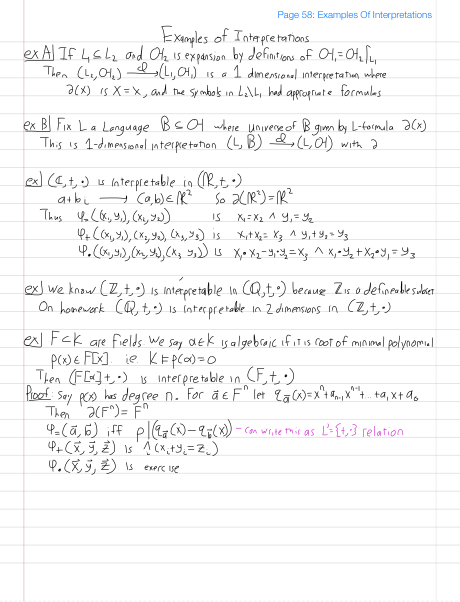 Page 58: Examples Of Interpretations
Examples of Interpretations
ex A| If L₁ ⊆ L₂ and 𝔄₂ is expansion by definitions of 𝔄₁ = 𝔄₂|L₁
Then (L₂, 𝔄₂) →ᵈ (L₁, 𝔄₁) is a 1 dimensional interpretation where
∂(x) is x = x, and the symbols in L₂\L₁ had appropriate formulas
ex B| Fix L a Language B ⊆ 𝔄 where universe of B given by L-formula ∂(x)
This is 1-dimensional interpretation (L, B) →ᵈ (L, 𝔄) with ∂
ex| (ℂ, +, ·) is interpretable in (ℝ, +, ·)
a+bi → (a,b) ∈ ℝ² So ∂(ℝ²) = ℝ²
Thus φ₌((x₁,y₁),(x₂,y₂)) is x₁=x₂ ∧ y₁=y₂
φ₊((x₁,y₁),(x₂,y₂),(x₃,y₃) is x₁+x₂=x₃ ∧ y₁+y₂=y₃
φ.((x₁,y₁),(x₂,y₂),(x₃,y₃)) is x₁·x₂-y₁·y₂=x₃ ∧ x₁·y₂+x₂·y₁=y₃
ex| we know (ℤ, +, ·) is interpretable in (ℚ, +, ·) because ℤ is a defineable subset
On homework (ℚ, +, ·) is interpretable in 2 dimensions in (ℤ, +, ·)
ex| F ⊂ K are fields we say α ∈ K is algebraic if it is root of minimal polynomial
p(x) ∈ F[x] ie K ⊨ p(α) = 0
Then (F[α] +, ·) is interpretable in (F, +, ·)
Proof: Say p(x) has degree n. For ā ∈ Fⁿ let q_ā(x) = xⁿ + aₙ₋₁xⁿ⁻¹ + ... + a₁x + a₀
Then ∂(Fⁿ) = Fⁿ
φ₌(ā, b̄) iff p | (q_ā(x) - q_b̄(x)) - can write this as L = {+, ·} relation
φ₊(x⃗, y⃗, z⃗) is ∧ᵢ(xᵢ+yᵢ=zᵢ)
φ.(x⃗, y⃗, z⃗) is exercise